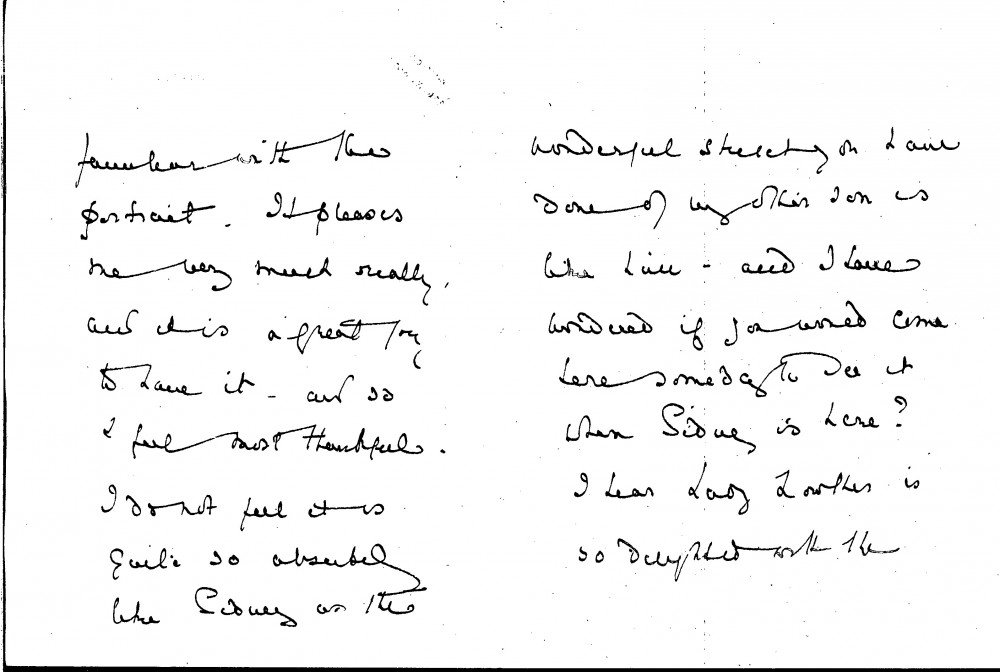 familiar with the
portrait. It pleases
me very much really,
and it is a great joy
to have it - and so
I feel most thankful.
I do not feel it is
quite so absolutely
like Sidney as the
wonderful sketch you have
done of my other son is
like him - and I have
wondered if you would come
here someday to see it
when Sidney is here?
I hear Lady Lowther is
so delighted with the